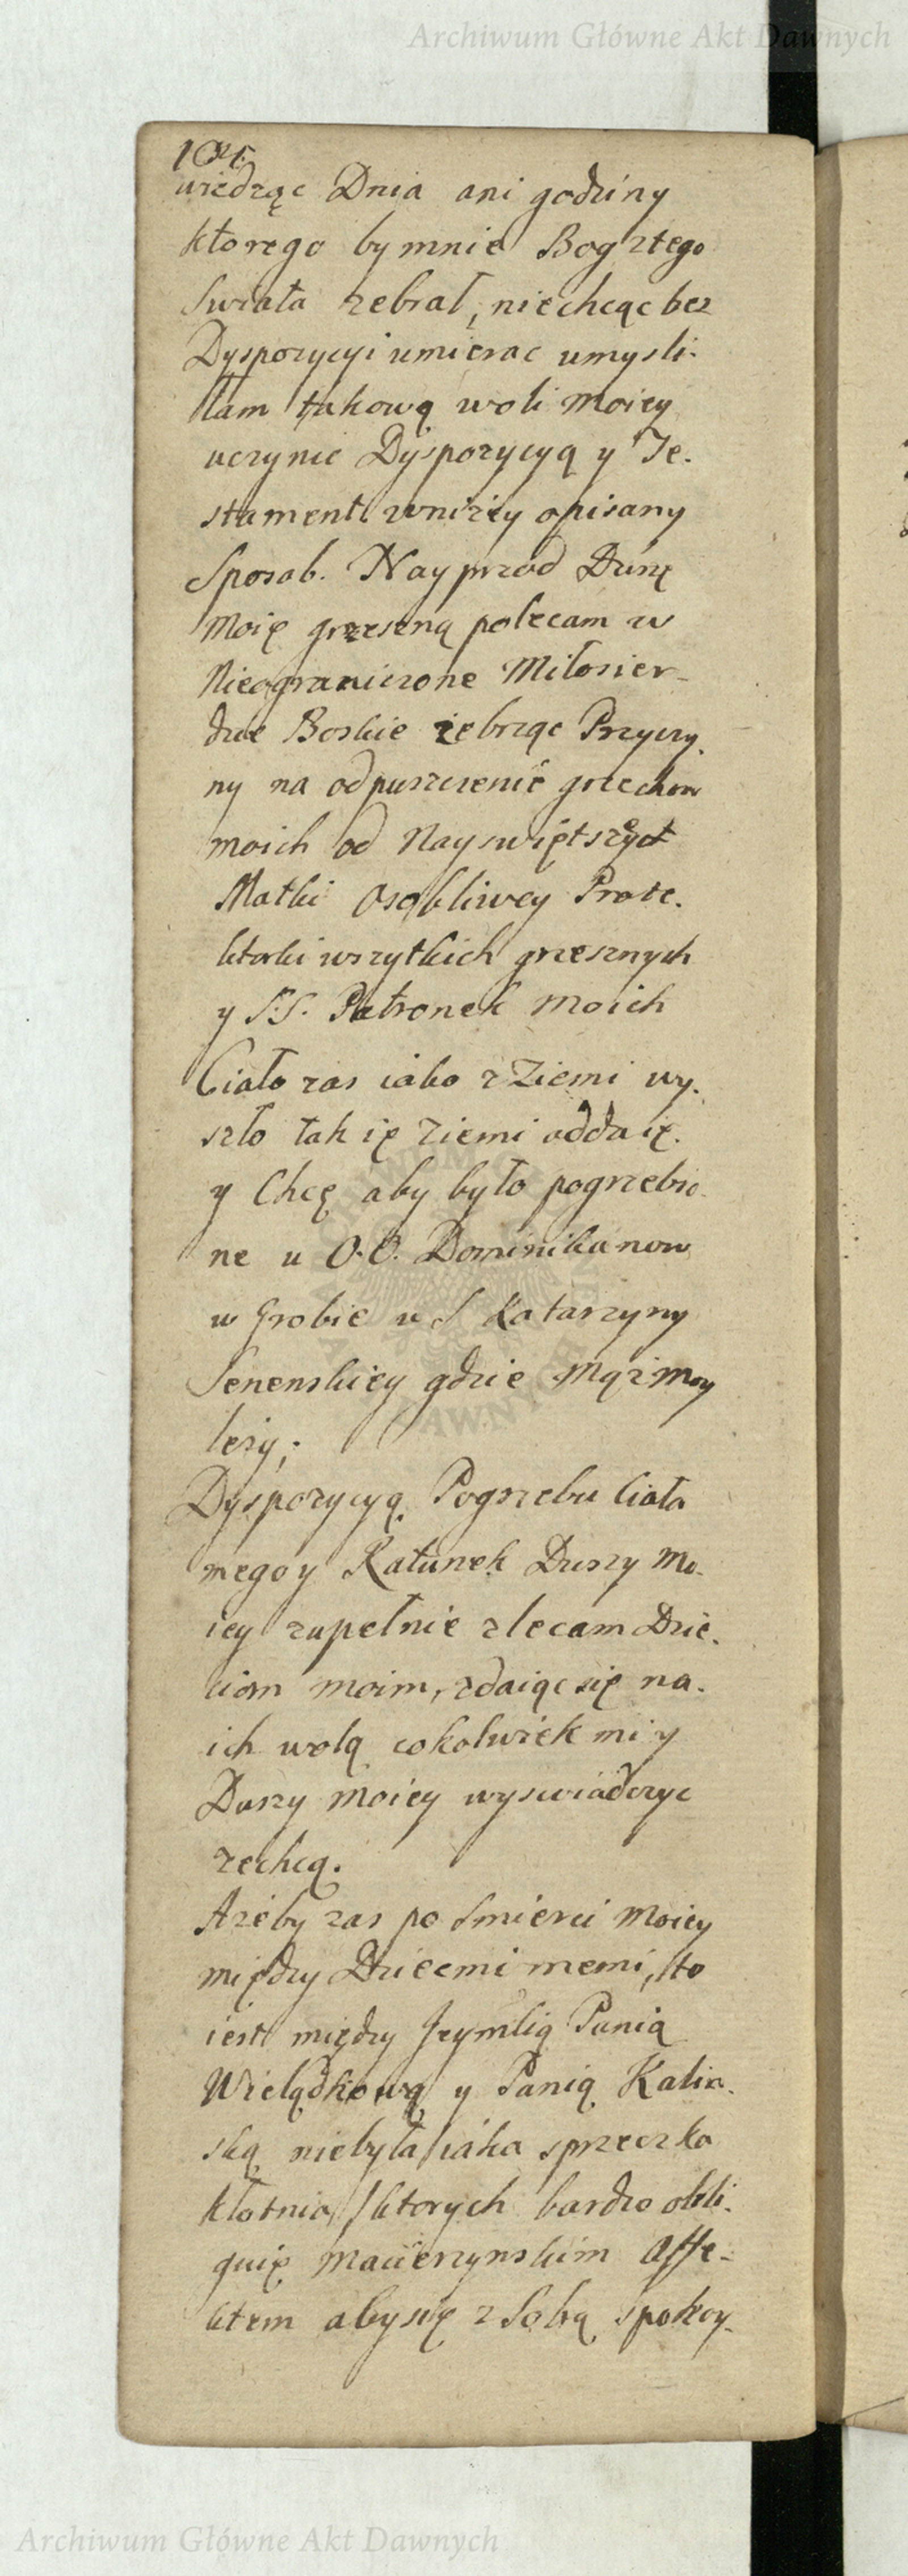 Archiwum Główne Akt Dawnych
wiedząc Dnia ani godziny
ktorego by mnie Bog ztego
Swiata zebrał, niechcąc bez
Dyspozycyi umierac umysli-
łam takową woli moiey
uczynic Dyspozycyą y Te-
stament wniżey opisany
Sposob. Nayprzod Duszę
Moię grzeszną polecam w
Nieograniczone Miłosier-
dzie Boskie żebrząc Przyczy-
ny na odpuszczenie grzechow
moich od Nayswiętszey
Matki Osobliwey Prote-
ktorki wszytkich grzesznych
y S.S. Patronek moich
Ciało zas iako z Ziemi wy-
szło tak ię Ziemi oddaię.
y Chcę aby było pogrzebio-
ne u O.O. Dominikanow
w Grobie u S Katarzyny
Senenskiey gdzie Mąż moy
leży;
Dyspozycyą Pogrzebu Ciała
mego y Ratunek Duszy Mo-
iey zupełnie zlecam Dzie-
ciom moim, zdaiąc się na
ich wolą cokolwiek mi y
Duszy moiey wyswiadczyc
zechcą.
Ażeby zas po Smierci Moiey
między Dziecmi memi, to
iest między Jeymscią Panią
Wielądkową y Panią Kalin-
ską niebyła iaka sprzeczka
kłotnia, ktorych bardzo obli-
guię Macierzynskim Affe-
ktem aby się z Sobą spokoy-
Archiwum Główne Akt Dawnych